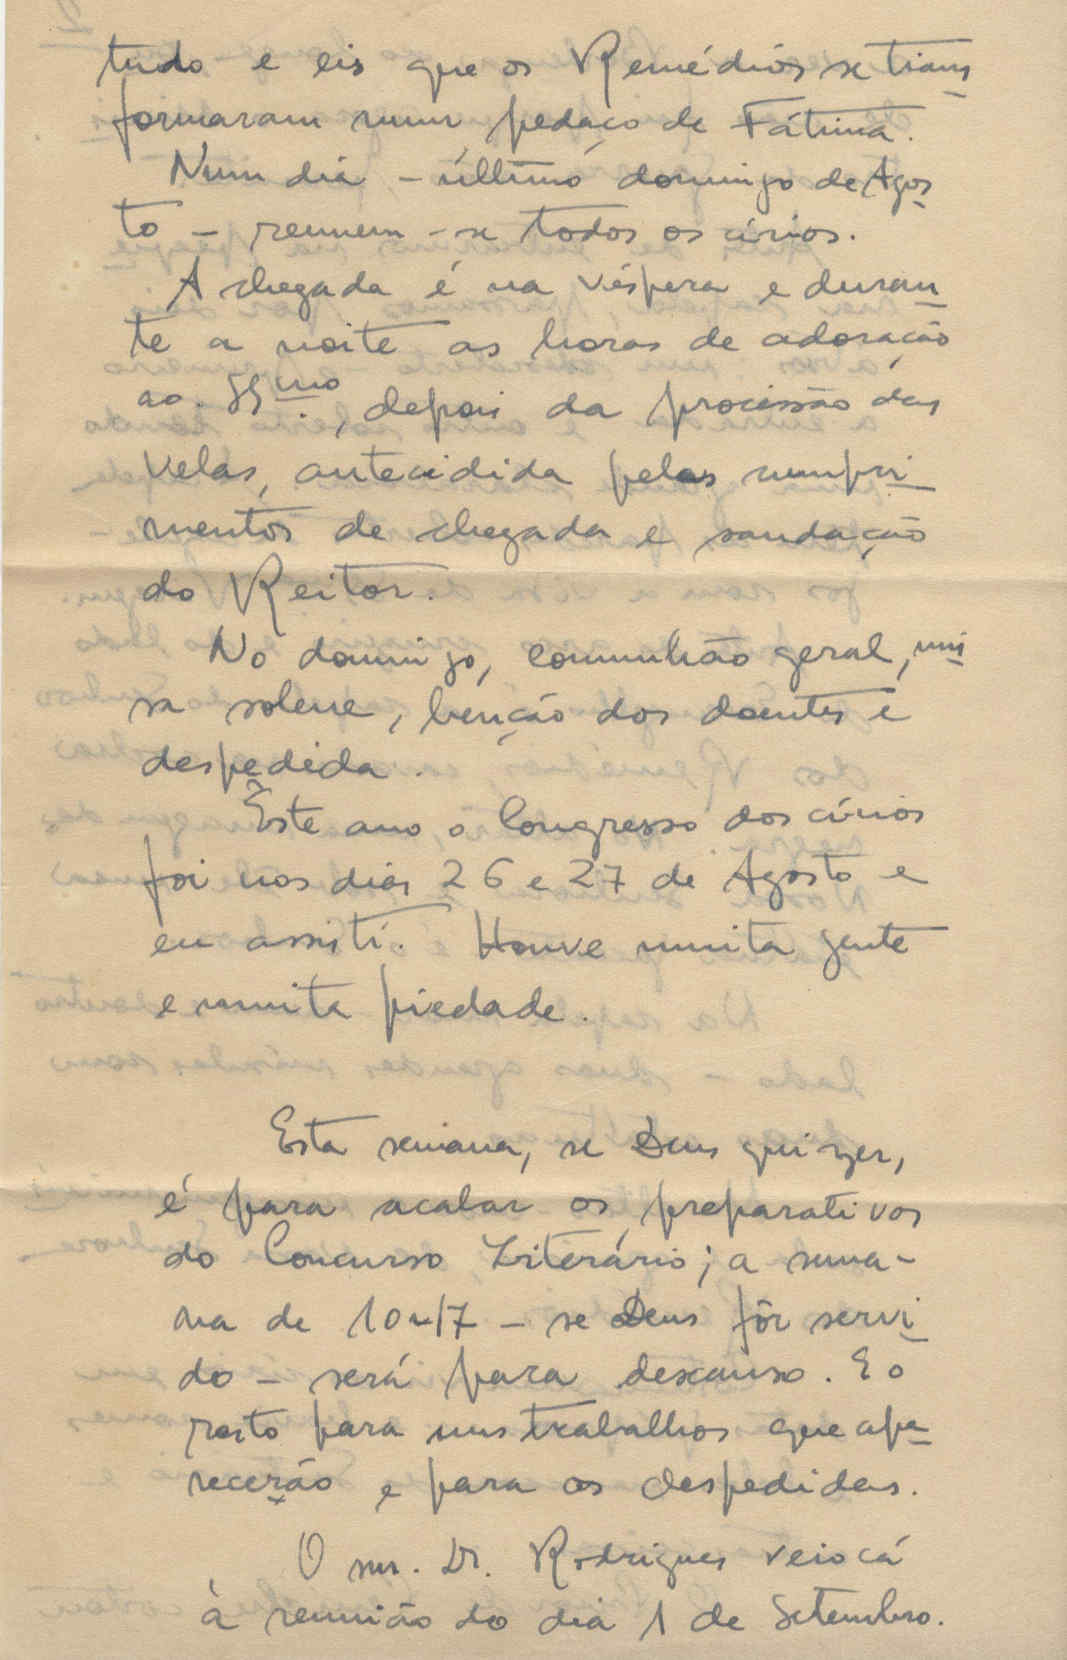 tudo e eis que os Remédios se trans
formaram num pedaço de Fátima.
Num dia - último domingo de Agos
to - reunem-se todos os círios.
A chegada é na véspera e duran
te a noite as horas de adoração
ao SSmo, depois da procissão das
velas, antecidida pelos cumpri
mentos de chegada e saudação
do Reitor.
No domingo, comunhão geral, mis
sa solene, benção dos doentes e
despedida.
Êste ano o Congresso dos círios
foi nos dias 26 e 27 de Agosto e
eu assisti. Houve muita gente
e muita piedade.
Esta semana, se Deus quizer,
é para acabar os preparativos
do Concurso Literário; a sema-
na de 10 a 17 - se Deus fôr servi
do - será para descanso. E o
resto para uns trabalhos que apa
recerão e para as despedidas.
O snr. Dr. Rodrigues veio cá
à reunião do dia 1 de Setembro.